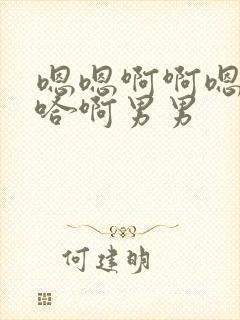 嗯嗯啊啊嗯
哈啊男男
何建明